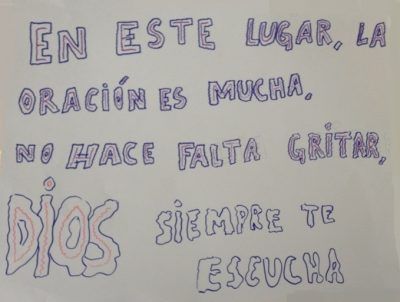 EN ESTE LUGAR, LA
ORACIÓN ES MUCHA,
NO HACE FALTA GRITAR,
DIOS SIEMPRE TE
ESCUCHA